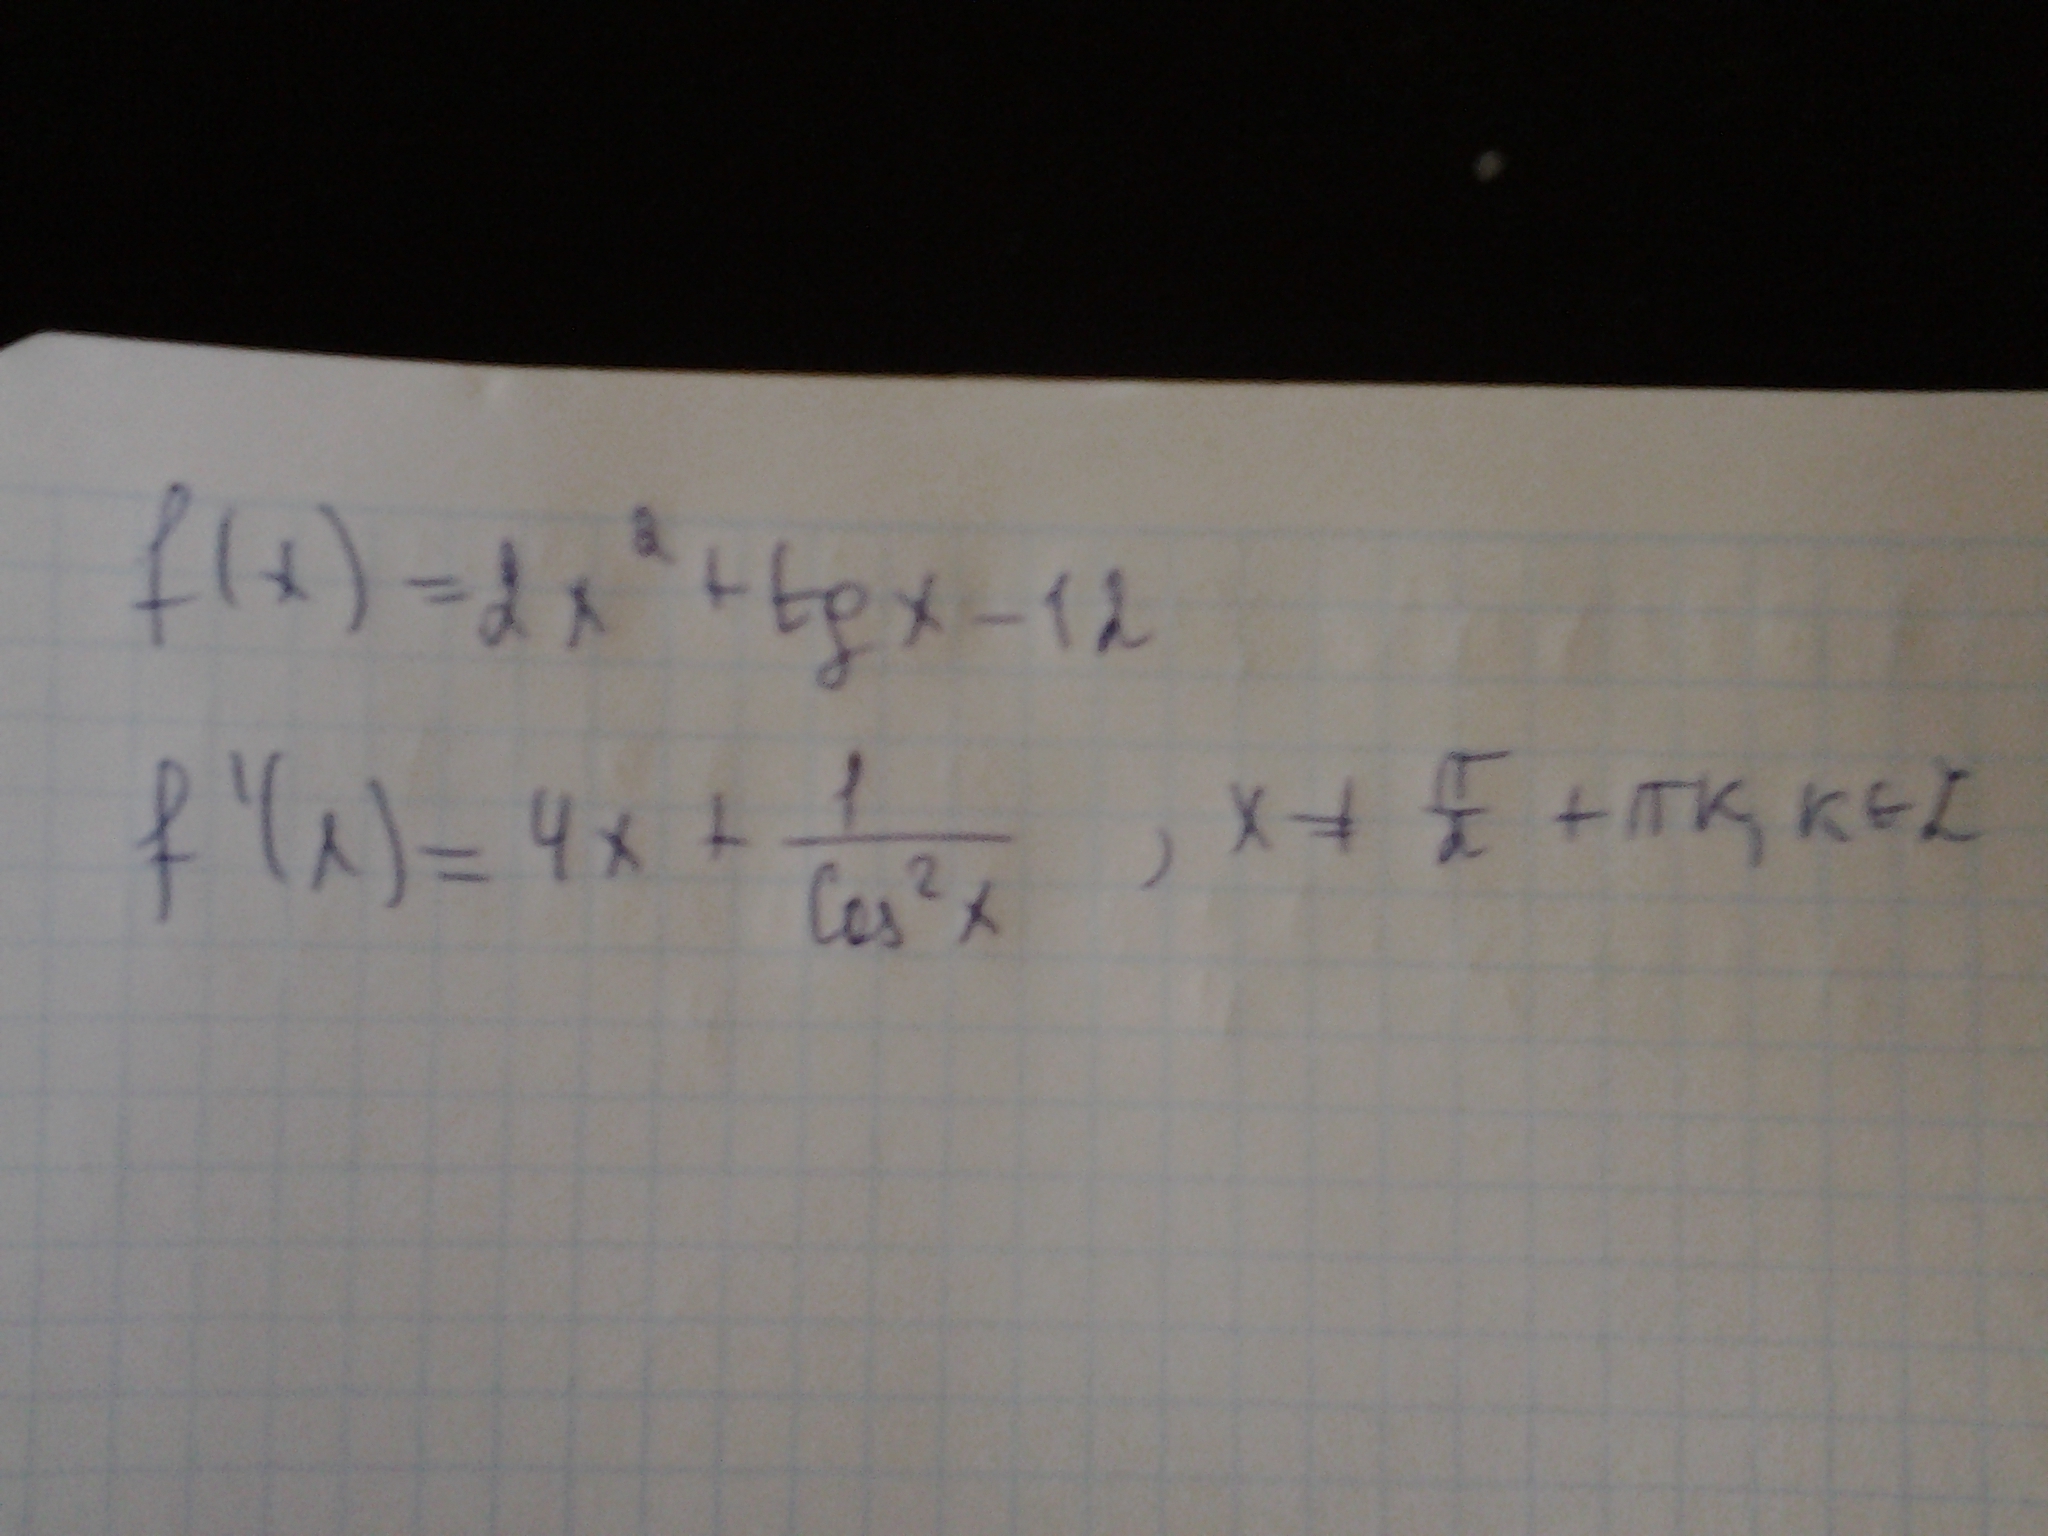 f(x) = 2x² + tg x - 12
f'(x) = 4x + 1/cos²x , x ≠ π/2 + πk, k ∈ Z